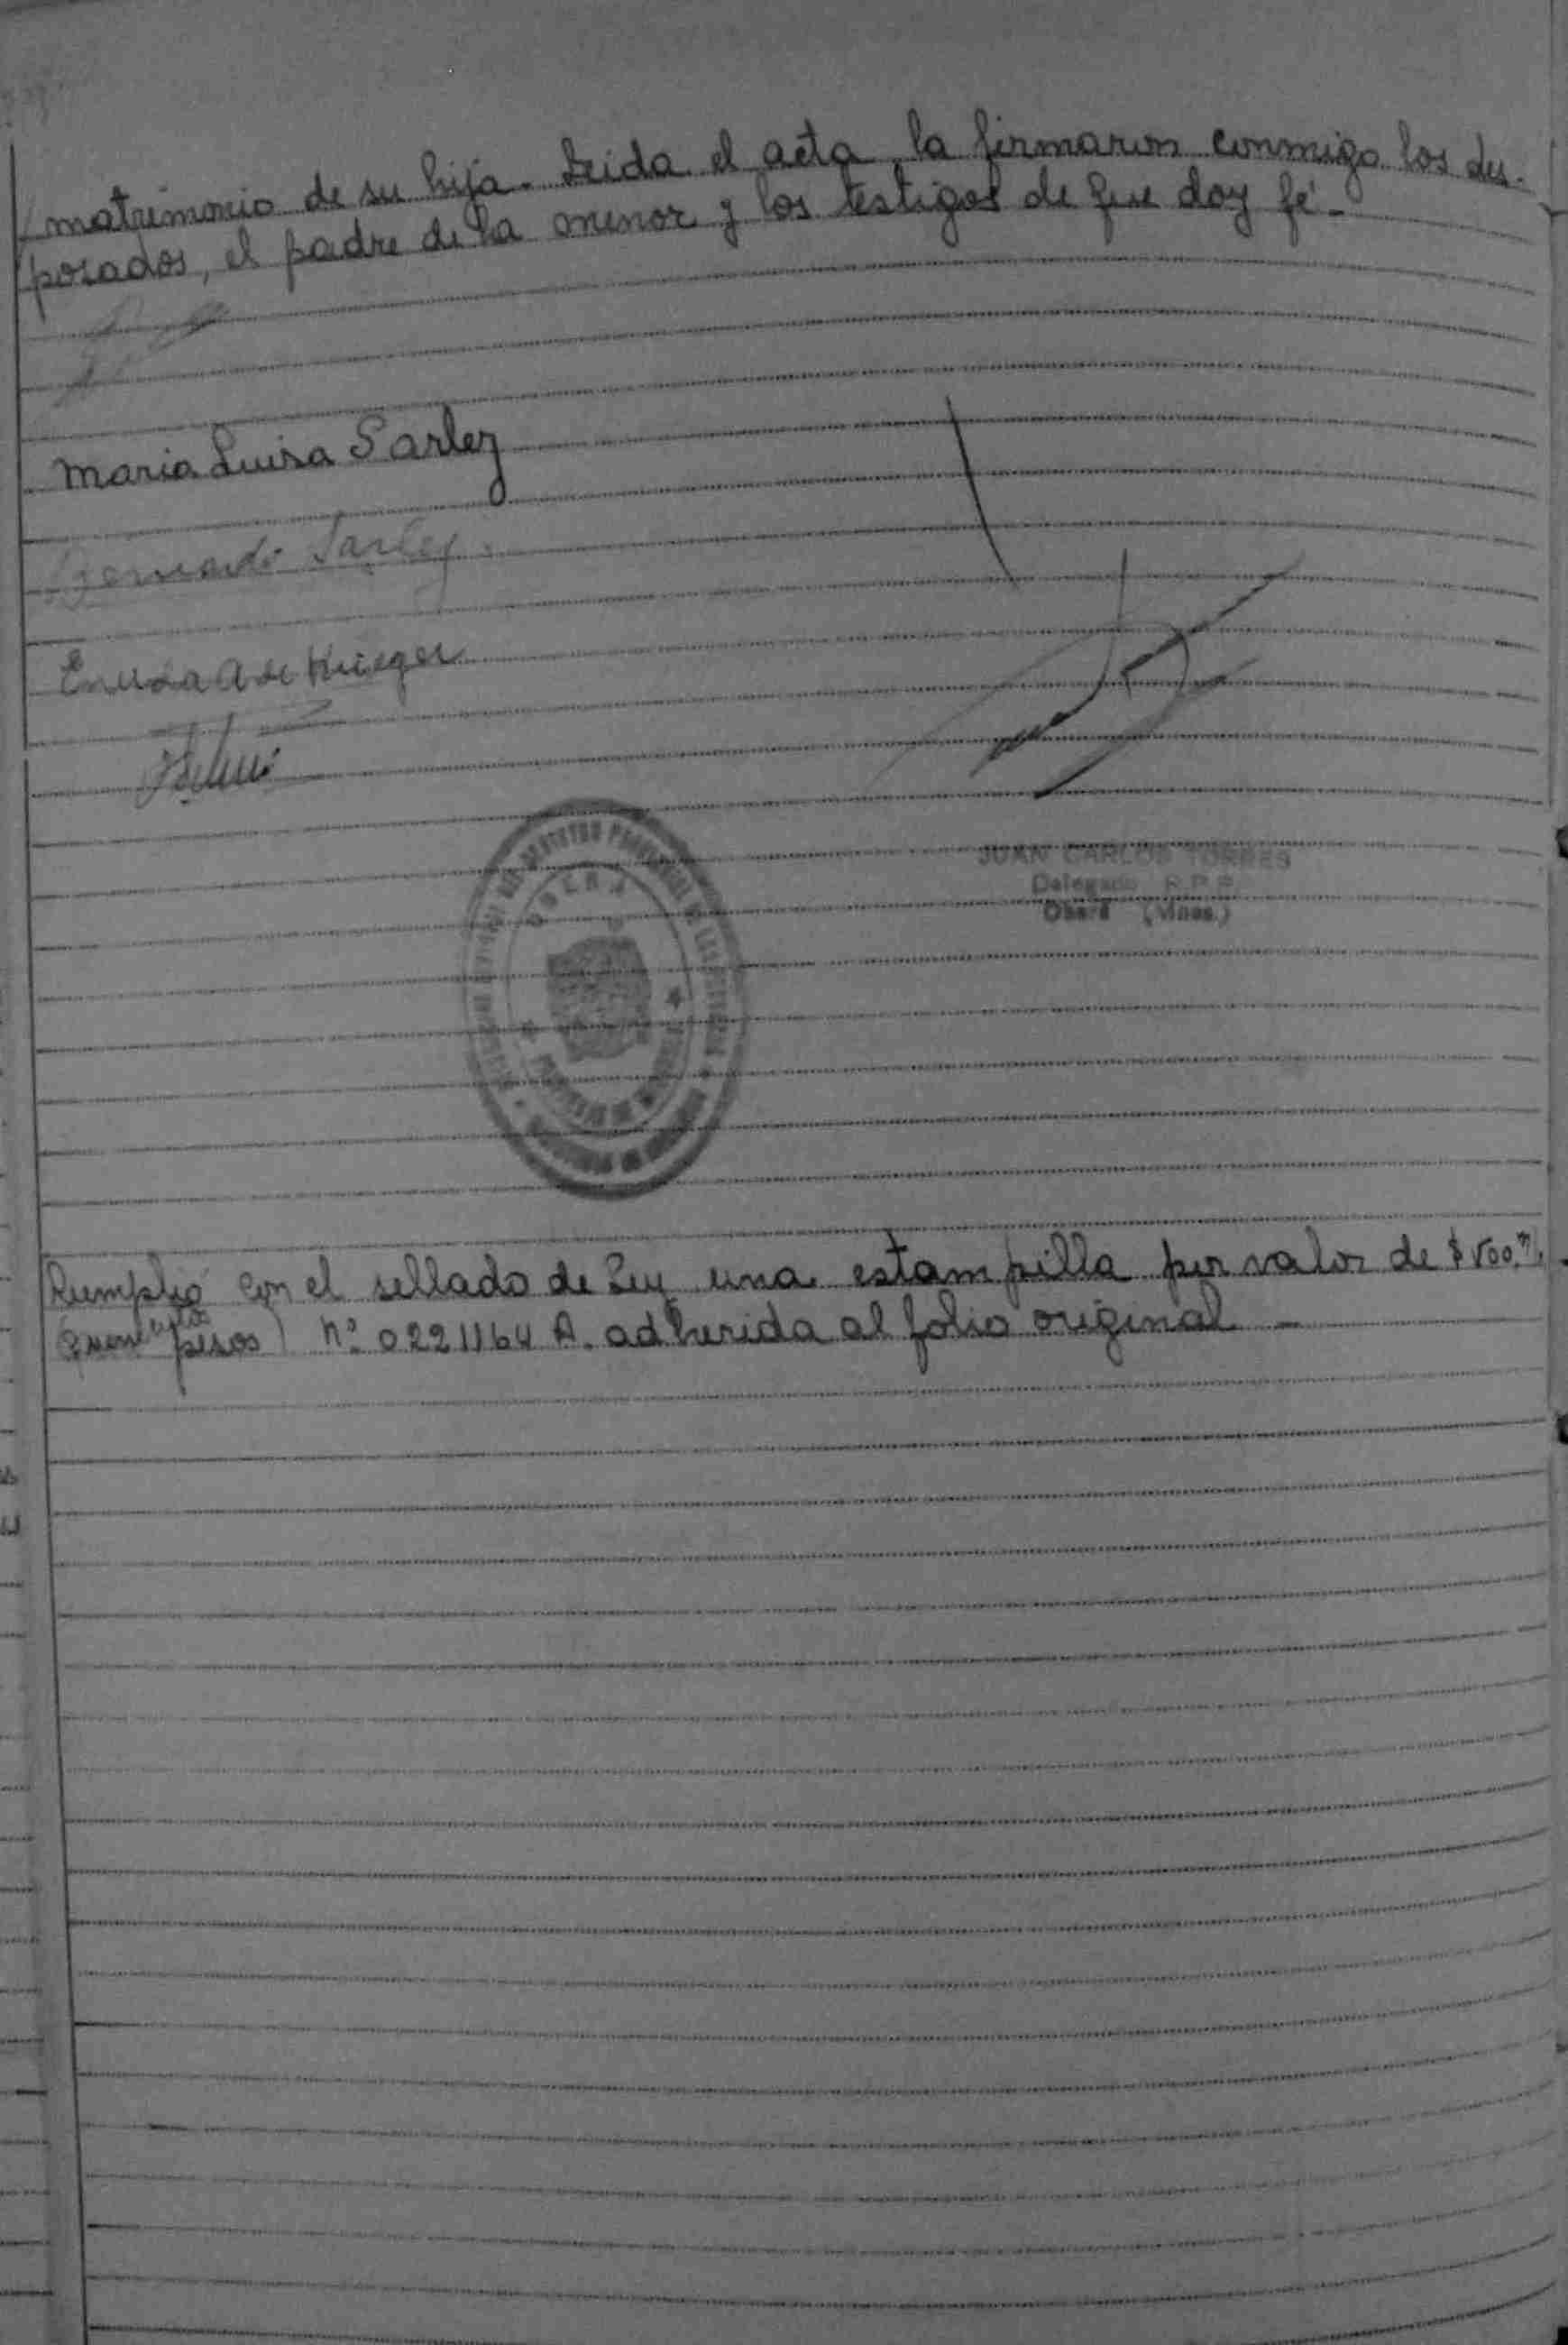 matrimonio de su hija. Leida el acta la firmaron conmigo los des-
posados, el padre de la menor y los testigos de que doy fé.-
Maria Luisa Sarley
Sarley
de Krieger
OBERA
JUAN CARLOS TORRES
Delegado R.P.P.
Oberá (Mnes.)
Cumplió con el sellado de Ley una estampilla por valor de $ 500.
pesos) Nº 0221164 A. adherida al folio original -